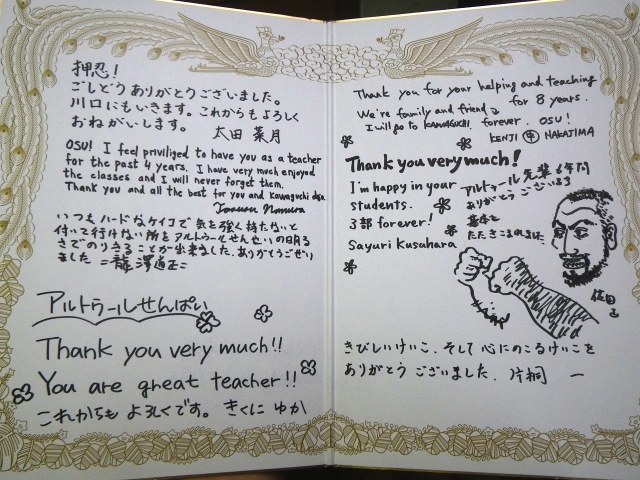 押忍！
ごしどうありがとうございました。
川口にもいきます。これからもよろしく
おねがいします。 太田 菜月
OSU! I feel priviliged to have you as a teacher
for the past 4 years. I have very much enjoyed
the classes and I will never forget them.
Thank you and all the best for you and Kawaguchi dojo.
いつもハードなケイコで気を強く持たないと
付いて行けない所をアルトゥールせんせいの明るさ
でのりきることが出来ました。ありがとうござい
ました
アルトゥールせんぱい
Thank you very much!!
You are great teacher!!
これからも よろしくです。 きくに ゆか
Thank you for your helping and teaching
We're family and friend for 8 years.
I will go to KAWAGUCHI forever. OSU!
KENJI NAKAJIMA
Thank you very much!
I'm happy in your
students.
3部 forever!
Sayuri Kusahara
アルトゥール先輩 8年間
ありがとうございます
基本を
佐田
きびしいけいこ、そして心にのこるけいこを
ありがとう ございました。 片桐 一